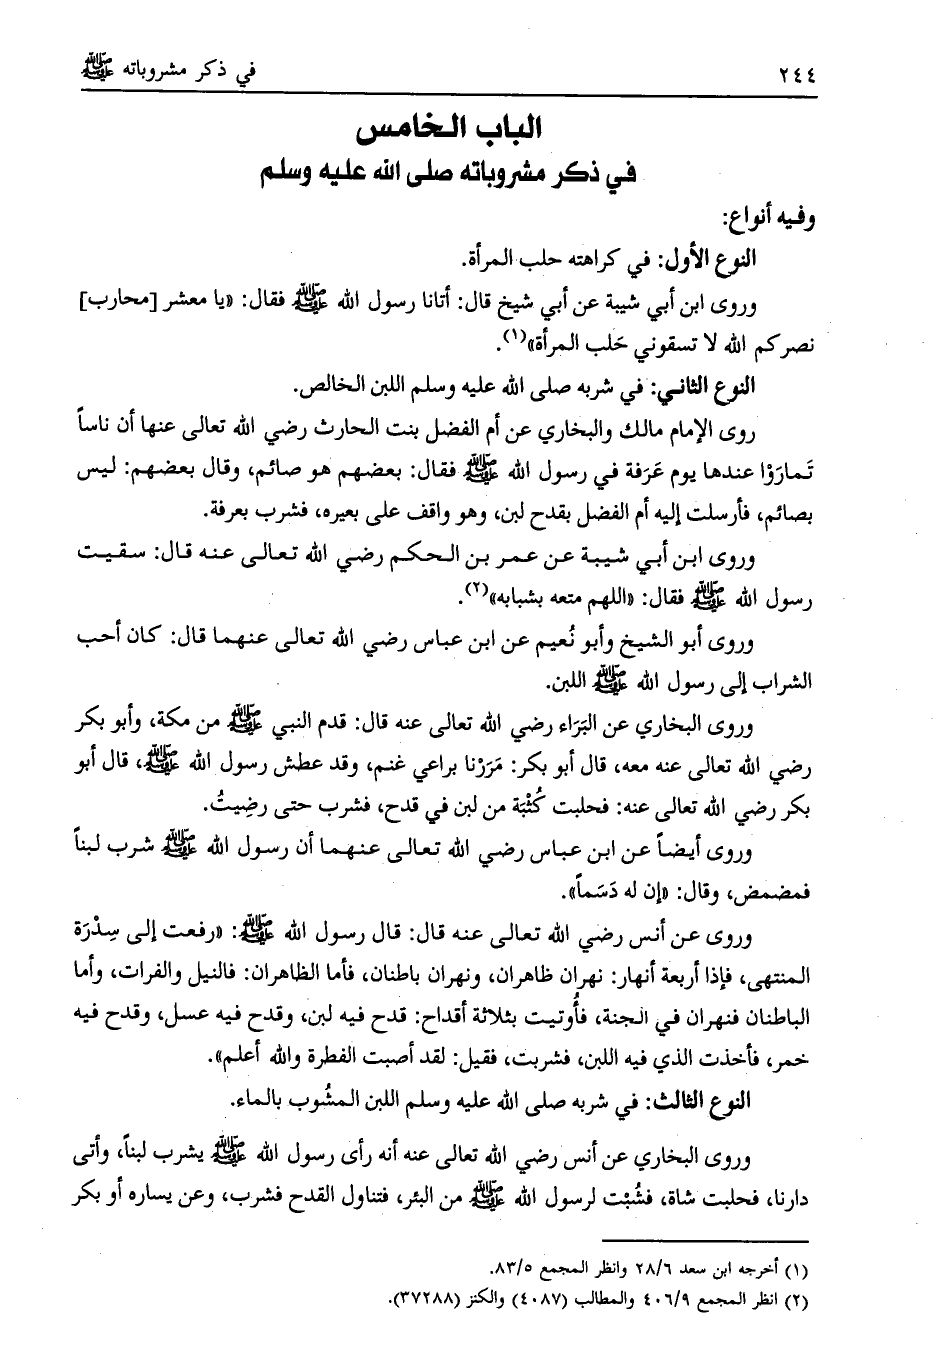 ٢٤٤ في ذكر مشروباته ﷺ
الباب الخامس
في ذكر مشروباته صلى الله عليه وسلم
وفيه أنواع:
النوع الأول: في كراهته حلب المرأة.
وروى ابن أبي شيبة عن أبي شيخ قال: أتانا رسول الله ﷺ فقال: «يا معشر [محارب]
نصركم الله لا تسقوني حَلب المرأة»(١).
النوع الثاني: في شربه صلى الله عليه وسلم اللبن الخالص.
روى الإمام مالك والبخاري عن أم الفضل بنت الحارث رضي الله تعالى عنها أن ناساً
تَمارَوْا عندها يوم عَرَفة في رسول الله ﷺ فقال: بعضهم هو صائم، وقال بعضهم: ليس
بصائم، فأرسلت إليه أم الفضل بقدح لبن، وهو واقف على بعيره، فشرب بعرفة.
وروى ابن أبي شيبة عن عمر بن الحكم رضي الله تعالى عنه قال: سقيت
رسول الله ﷺ فقال: «اللهم متعه بشبابه»(٢).
وروى أبو الشيخ وأبو نُعيم عن ابن عباس رضي الله تعالى عنهما قال: كان أحب
الشراب إلى رسول الله ﷺ اللبن.
وروى البخاري عن البَرَاء رضي الله تعالى عنه قال: قدم النبي ﷺ من مكة، وأبو بكر
رضي الله تعالى عنه معه، قال أبو بكر: مَرَرْنا براعي غنم، وقد عطش رسول الله ﷺ، قال أبو
بكر رضي الله تعالى عنه: فحلبت كُثْبَة من لبن في قدح، فشرب حتى رضِيتُ.
وروى أيضاً عن ابن عباس رضي الله تعالى عنهما أن رسول الله ﷺ شرب لبناً
فمضمض، وقال: «إن له دَسَماً».
وروى عن أنس رضي الله تعالى عنه قال: قال رسول الله ﷺ: «رفعت إلى سِدْرَة
المنتهى، فإذا أربعة أنهار: نهران ظاهران، ونهران باطنان، فأما الظاهران: فالنيل والفرات، وأما
الباطنان فنهران في الجنة، فأُوتيت بثلاثة أقداح: قدح فيه لبن، وقدح فيه عسل، وقدح فيه
خمر، فأخذت الذي فيه اللبن، فشربت، فقيل: لقد أصبت الفطرة والله أعلم».
النوع الثالث: في شربه صلى الله عليه وسلم اللبن المشُوب بالماء.
وروى البخاري عن أنس رضي الله تعالى عنه أنه رأى رسول الله ﷺ يشرب لبناً، وأتى
دارنا، فحلبت شاة، فشُبْت لرسول الله ﷺ من البئر، فتناول القدح فشرب، وعن يساره أو بكر
(١) أخرجه ابن سعد ٢٨/٦ وانظر المجمع ٨٣/٥.
(٢) انظر المجمع ٤٠٦/٩ والمطالب (٤٠٨٧) والكنز (٣٧٢٨٨).